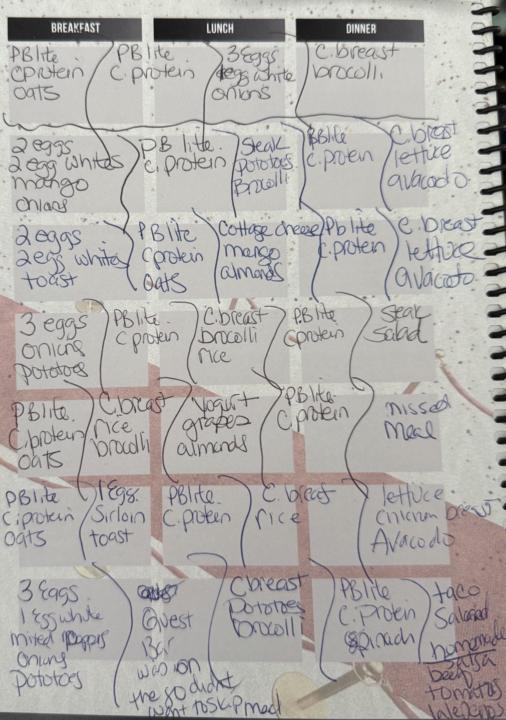 BREAKFAST
LUNCH
DINNER
PBlite
Cprotein
oats
PB lite
C. protein
3 eggs
egg white
onions
C. breast
brocolli
2 eggs
2 egg whites
mango
onions
PB lite.
C. protein
Steak
pototoes
Brocolli
PBlite
C. protein
C. breast
lettuce
avacado
2 eggs
2 egg whites
toast
PB lite
Cprotein
oats
Cottage cheese
mango
almonds
Pb lite
C. protein
C. breast
lettuce
avacato
3 eggs
onions
pototoes
PB lite.
C protein
C. breast
brocolli
rice
PB lite
C protein
Steak
salad
PB lite.
C. protein
oats
C. breast
rice
brocolli
Yogurt
grapes
almonds
PB lite
C. protein
missed
meal
PB lite
C. protein
oats
1 Egg
Sirloin
toast
PB lite
C. protein
C. breast
rice
lettuce
chicken breast
Avacado
3 Eggs
1 Egg white
mixed peppers
onions
pototoes
Quest
Bar
was on
the go didnt
want to skip meal
C breast
Pototoes
brocolli
PB lite
C. Protein
Spinach
taco
Salad
homemade
salsa
beef
tomatos